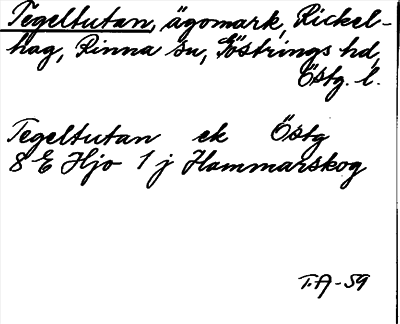 Tegeltutan, ägomark, Rickel-
hag, Rinna sn, Göstrings hd,
Östg. l.
Tegeltutan ek Östg
8 E Hjo 1 j Hammarskog
T.A-59